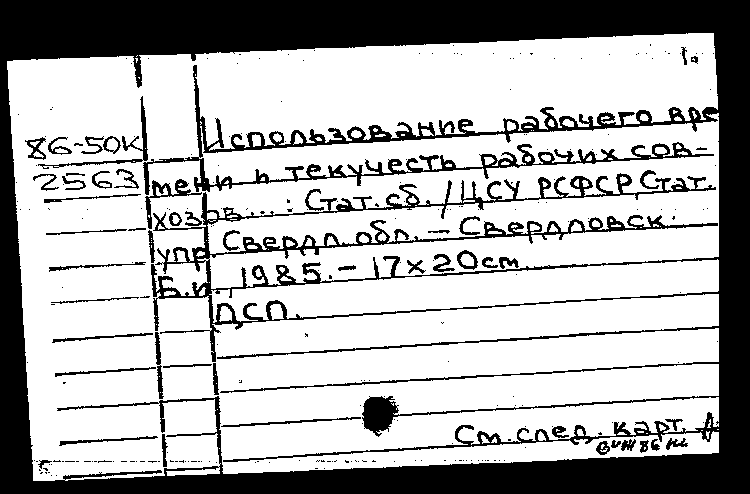 1.
86-50К Использование рабочего вре
2563 мени и текучесть рабочих сов-
хозов...: Стат. сб. / ЦСУ РСФСР, Стат.
упр. Свердл. обл. - Свердловск:
Б.и., 1985. - 17×20см
ДСП.
См. след. карт.